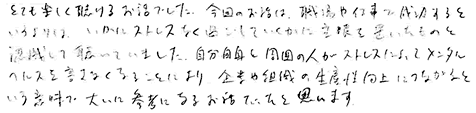 とても楽しく聴けるお話でした。今回のお話は、職場や仕事で成功すると
いうよりは、いかにストレスなく過ごしていくかに意識を置いたものと
認識して聴いていました。自分自身と周囲の人がストレスによってメンタル
ヘルスを害さなくなることにより、企業や組織の生産性向上につながると
いう意味で大いに参考になるお話だったと思います。